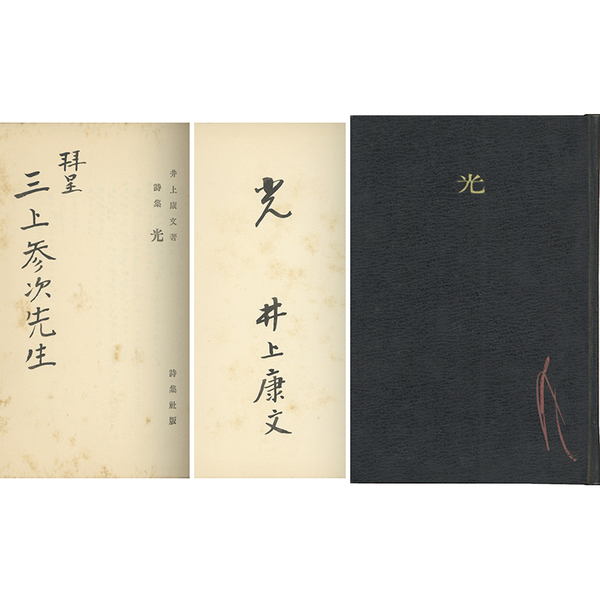 拝呈
三上参次先生
井上康文著
詩集 光
詩集社版
光
井上康文
光